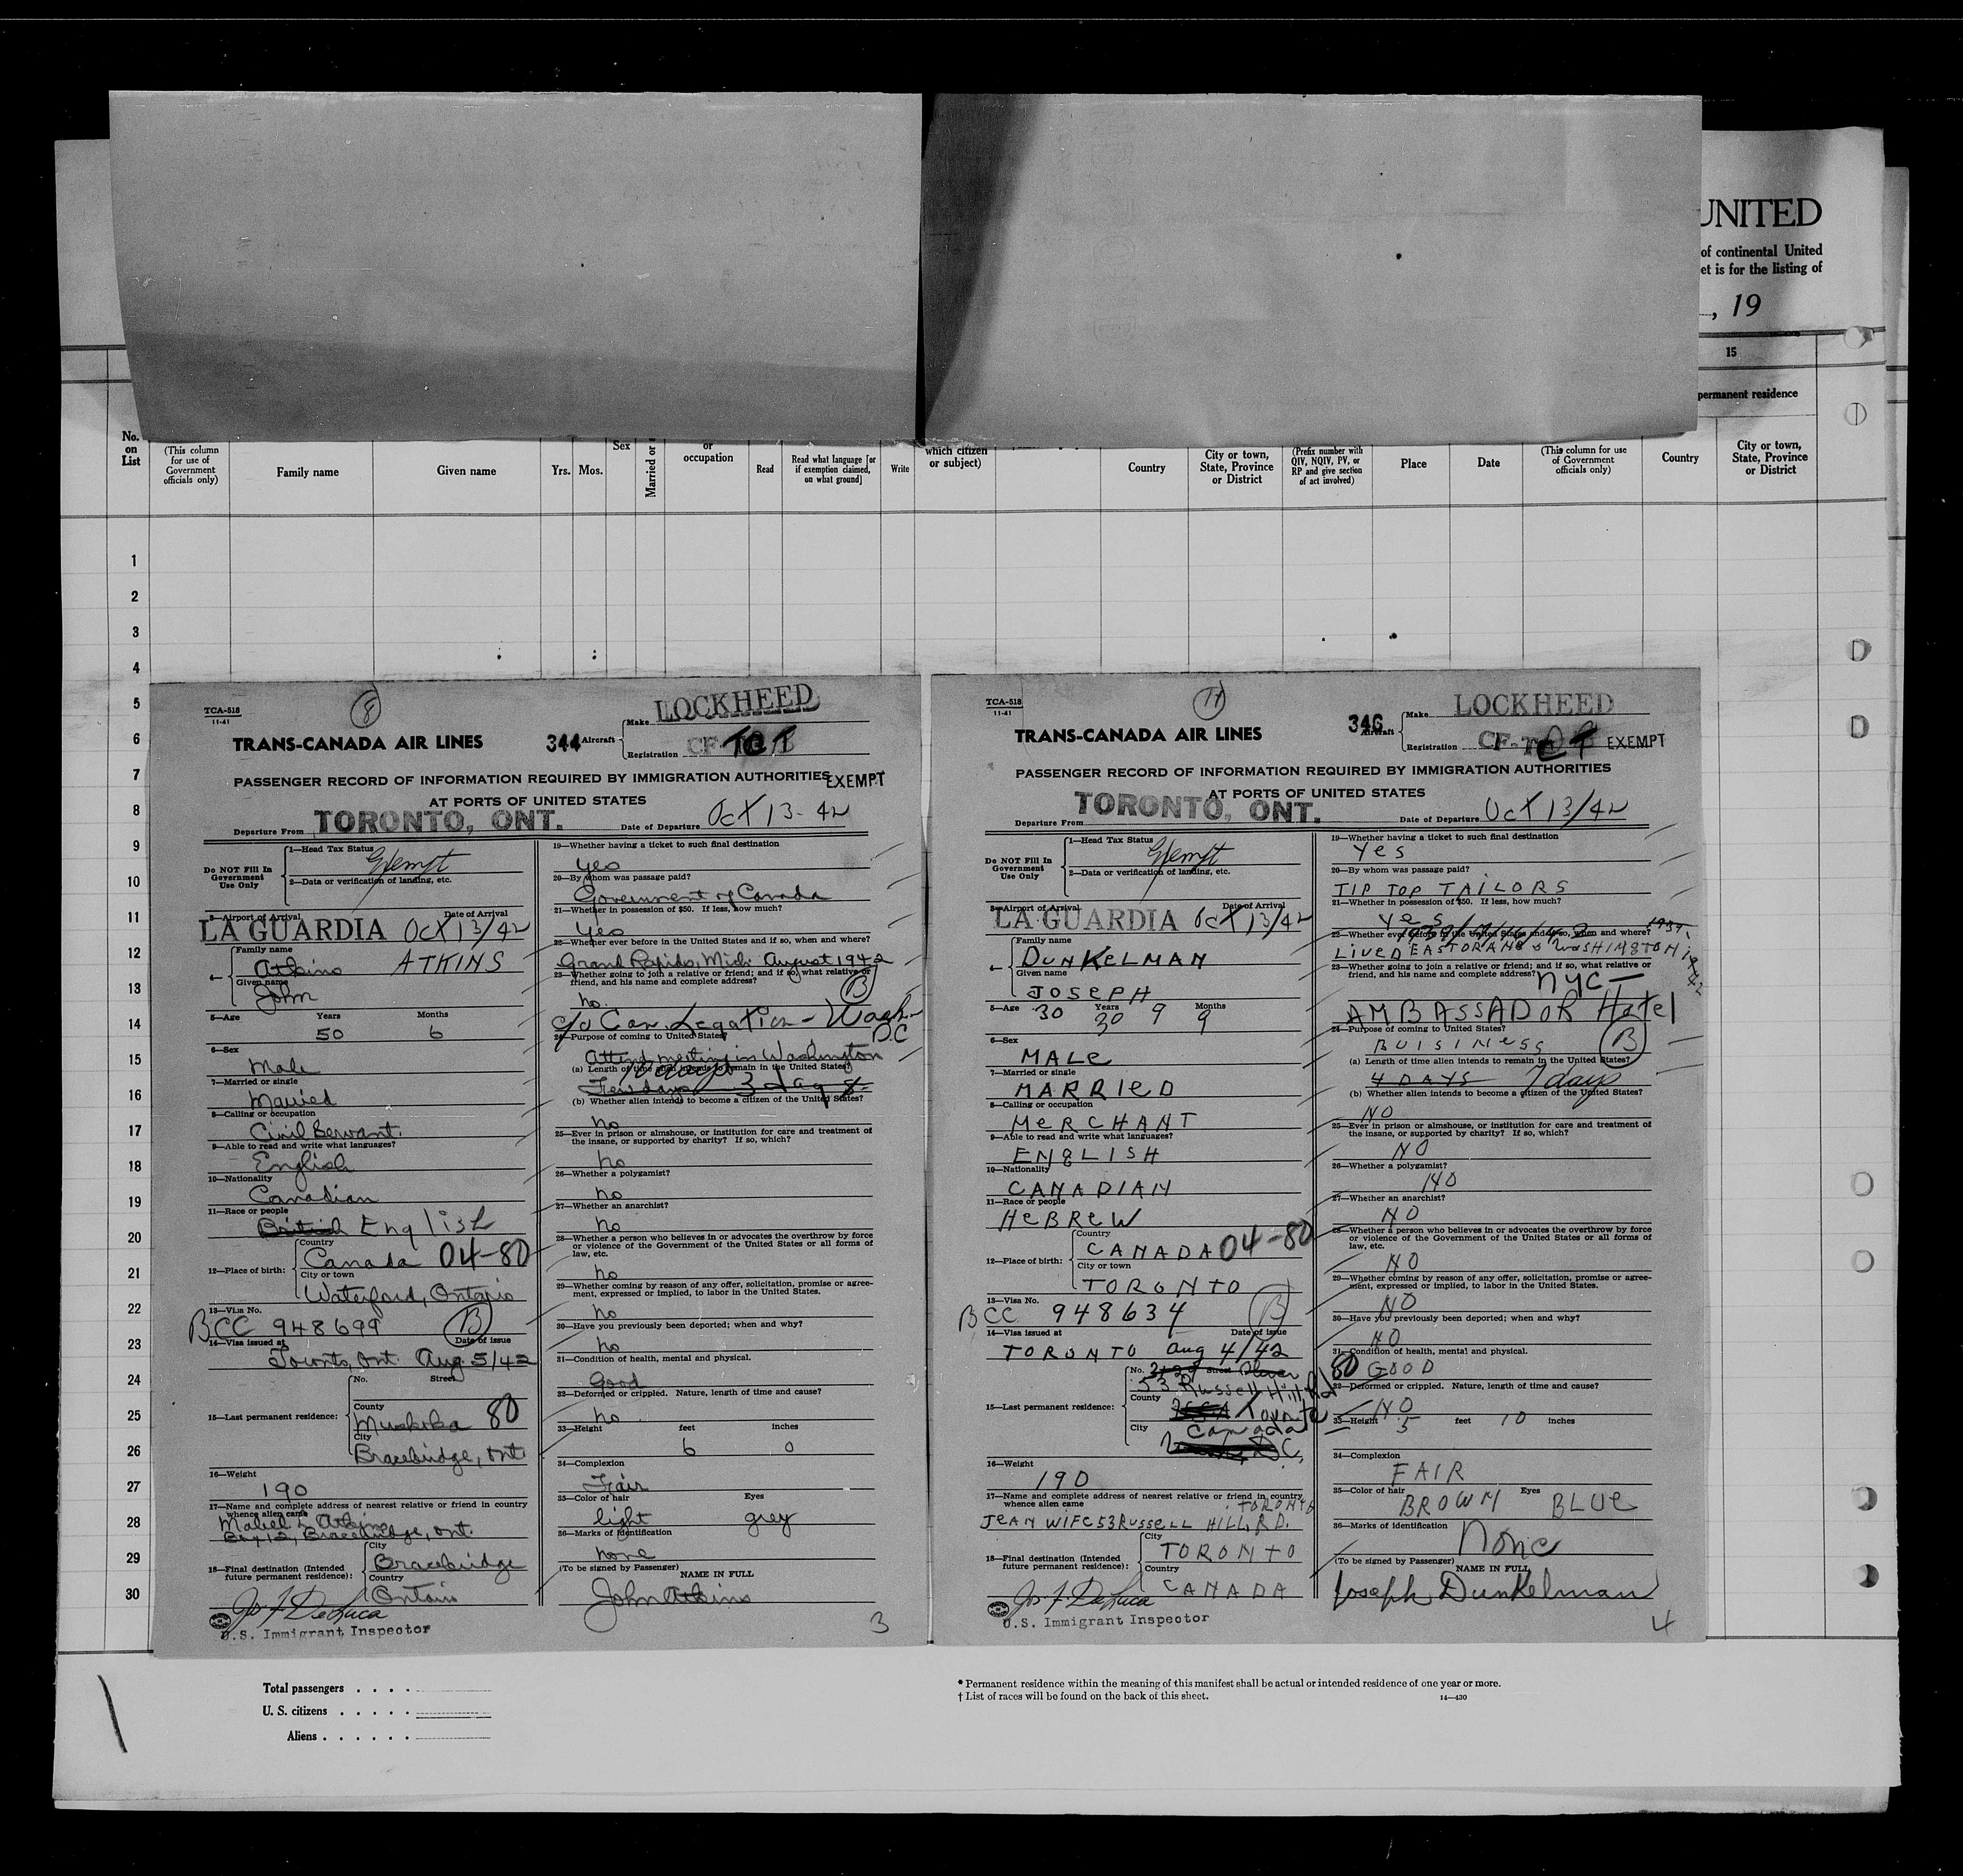 UNITED
of continental United
et is for the listing of
, 19
15
permanent residence
No. on List
(This column for use of Government officials only)
Family name
Given name
Yrs. Mos.
Sex
Married or
or occupation
Read
Read what language [or if exemption claimed, on what ground]
Write
which citizen or subject)
Country
City or town, State, Province or District
(Prefix number with QIV, NQIV, PV, or RP and give section of act involved)
Place
Date
(This column for use of Government officials only)
Country
City or town, State, Province or District
1
2
3
4
5
6
7
8
9
10
11
12
13
14
15
16
17
18
19
20
21
22
23
24
25
26
27
28
29
30
TCA-518
11-41
8
TRANS-CANADA AIR LINES
344 Aircraft
Make LOCKHEED
Registration CF-TCT
PASSENGER RECORD OF INFORMATION REQUIRED BY IMMIGRATION AUTHORITIES EXEMPT
AT PORTS OF UNITED STATES
Departure From TORONTO, ONT.
Date of Departure Oct 13-42
Do NOT Fill In Government Use Only
1—Head Tax Status
Exempt
2—Data or verification of landing, etc.
3—Airport of Arrival
Date of Arrival
LA GUARDIA Oct 13/42
4—
Family name
Atkins ATKINS
Given name
John
5—Age Years Months
50 6
6—Sex
Male
7—Married or single
Married
8—Calling or occupation
Civil Servant.
9—Able to read and write what languages?
English
10—Nationality
Canadian
11—Race or people
British English
12—Place of birth:
Country
Canada 04-80
City or town
Waterford, Ontario
13—Visa No.
BCC 948699 B
14—Visa issued at
Date of issue
Toronto, Ont. Aug. 5/42
15—Last permanent residence:
No. Street
County
Muskoka 80
City
Bracebridge, Ont
16—Weight
190
17—Name and complete address of nearest relative or friend in country whence alien came
Mabel L. Atkins
Box 12, Bracebridge, Ont.
18—Final destination (Intended future permanent residence):
City
Bracebridge
Country
Ontario
Jos F DeLuca
U.S. Immigrant Inspector
19—Whether having a ticket to such final destination
yes
20—By whom was passage paid?
Government of Canada
21—Whether in possession of $50. If less, how much?
yes
22—Whether ever before in the United States and if so, when and where?
Grand Rapids, Mich. August 1942
23—Whether going to join a relative or friend; and if so, what relative or friend, and his name and complete address?
no. B
c/o Can. Legation - Wash. D.C
24—Purpose of coming to United States?
Attend meeting in Washington
(a) Length of time alien intends to remain in the United States?
10 days
Few days 3 days
(b) Whether alien intends to become a citizen of the United States?
no
25—Ever in prison or almshouse, or institution for care and treatment of the insane, or supported by charity? If so, which?
no
26—Whether a polygamist?
no
27—Whether an anarchist?
no
28—Whether a person who believes in or advocates the overthrow by force or violence of the Government of the United States or all forms of law, etc.
no
29—Whether coming by reason of any offer, solicitation, promise or agreement, expressed or implied, to labor in the United States.
no
30—Have you previously been deported; when and why?
no
31—Condition of health, mental and physical.
Good
32—Deformed or crippled. Nature, length of time and cause?
no
33—Height feet inches
6 0
34—Complexion
Fair
35—Color of hair Eyes
light grey
36—Marks of identification
none
(To be signed by Passenger) NAME IN FULL
John Atkins
3
TCA-518
11-41
11
TRANS-CANADA AIR LINES
346 Aircraft
Make LOCKHEED
Registration CF-TCT EXEMPT
PASSENGER RECORD OF INFORMATION REQUIRED BY IMMIGRATION AUTHORITIES
AT PORTS OF UNITED STATES
Departure From TORONTO, ONT.
Date of Departure Oct 13/42
Do NOT Fill In Government Use Only
1—Head Tax Status
Exempt
2—Data or verification of landing, etc.
3—Airport of Arrival
Date of Arrival
LA GUARDIA Oct 13/42
4—
Family name
DUNKELMAN
Given name
JOSEPH
5—Age 30 Years 9 Months
30 9
6—Sex
MALE
7—Married or single
MARRIED
8—Calling or occupation
MERCHANT
9—Able to read and write what languages?
ENGLISH
10—Nationality
CANADIAN
11—Race or people
HEBREW
12—Place of birth:
Country
CANADA 04-80
City or town
TORONTO
13—Visa No.
BCC 948634 B
14—Visa issued at
Date of issue
TORONTO Aug 4/42
15—Last permanent residence:
No. Street
53 Russell Hill Rd 80
County
Toronto
City Canada
16—Weight
190
17—Name and complete address of nearest relative or friend in country whence alien came
TORONTO
JEAN WIFE 53 RUSSELL HILL RD.
18—Final destination (Intended future permanent residence):
City
TORONTO
Country
CANADA
Jos. F. DeLuca
U.S. Immigrant Inspector
19—Whether having a ticket to such final destination
Yes
20—By whom was passage paid?
TIP TOP TAILORS
21—Whether in possession of $50. If less, how much?
Yes
22—Whether ever before in the United States and if so, when and where?
LIVED EAST ORANGE & WASHINGTON
23—Whether going to join a relative or friend; and if so, what relative or friend, and his name and complete address?
NYC —
AMBASSADOR Hotel
24—Purpose of coming to United States?
BUISINESS B
(a) Length of time alien intends to remain in the United States?
4 DAYS 7 days
(b) Whether alien intends to become a citizen of the United States?
NO
25—Ever in prison or almshouse, or institution for care and treatment of the insane, or supported by charity? If so, which?
NO
26—Whether a polygamist?
NO
27—Whether an anarchist?
NO
28—Whether a person who believes in or advocates the overthrow by force or violence of the Government of the United States or all forms of law, etc.
NO
29—Whether coming by reason of any offer, solicitation, promise or agreement, expressed or implied, to labor in the United States.
NO
30—Have you previously been deported; when and why?
NO
31—Condition of health, mental and physical.
GOOD
32—Deformed or crippled. Nature, length of time and cause?
NO
33—Height 5 feet 10 inches
34—Complexion
FAIR
35—Color of hair Eyes
BROWN BLUE
36—Marks of identification
None
(To be signed by Passenger) NAME IN FULL
Joseph Dunkelman
4
Total passengers . . . .
U. S. citizens . . . . .
Aliens . . . . . .
* Permanent residence within the meaning of this manifest shall be actual or intended residence of one year or more.
† List of races will be found on the back of this sheet.
14—430